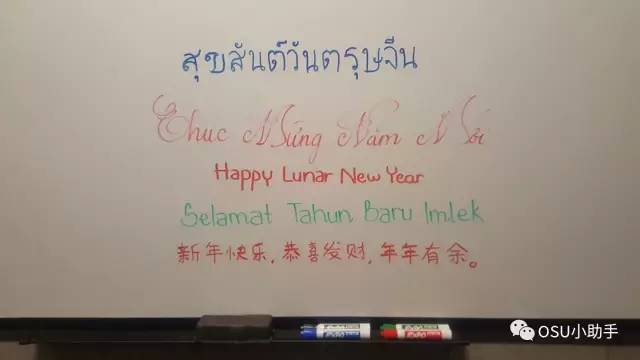 สุขสันต์วันตรุษจีน
Chuc Mừng Năm Mới
Happy Lunar New Year
Selamat Tahun Baru Imlek
新年快乐，恭喜发财，年年有余。
EXPO EXPO
OSU小助手